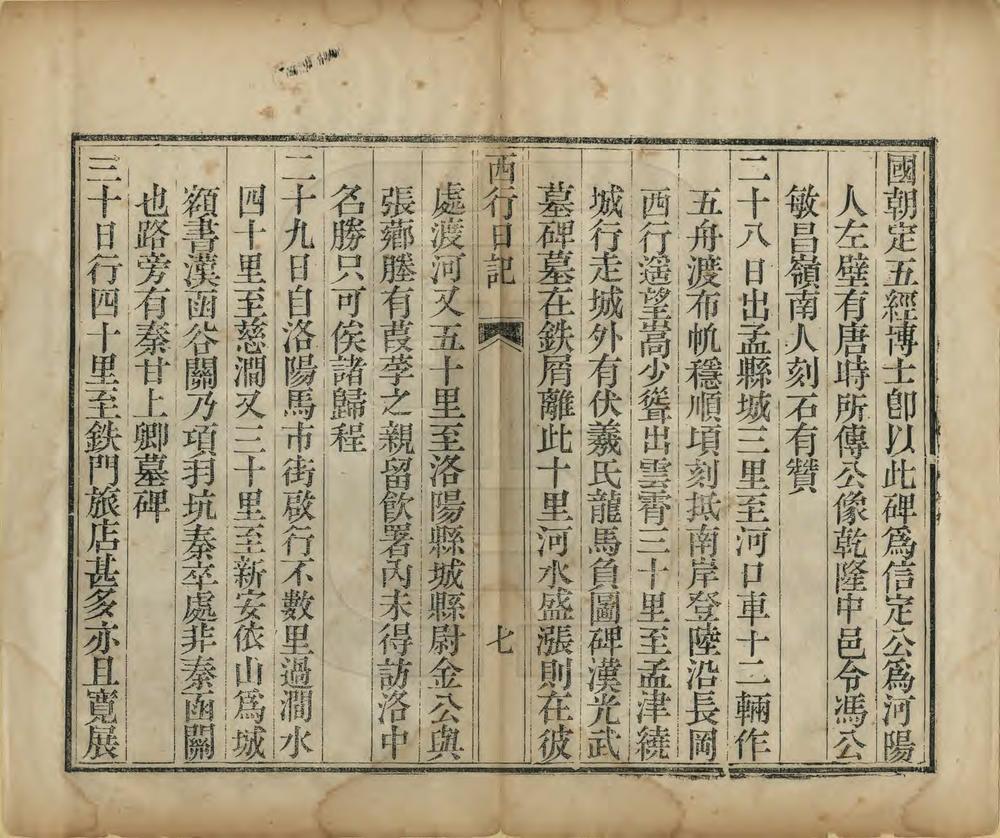 國朝定五經博士卽以此碑爲信定公爲河陽
人左壁有唐時所傳公像乾隆中邑令馮公
敏昌嶺南人刻石有贊
二十八日出孟縣城三里至河口車十二輛作
五舟渡布帆穩順頃刻抵南岸登陸沿長岡
西行遥望嵩少聳出雲霄三十里至孟津繞
城行走城外有伏羲氏龍馬負圖碑漢光武
墓碑墓在鉄屑離此十里河水盛漲則在彼
西行日記 七
處渡河又五十里至洛陽縣城縣尉金公與
張薌塍有葭莩之親留飲署內未得訪洛中
名勝只可俟諸歸程
二十九日自洛陽馬市街啟行不數里過澗水
四十里至慈澗又三十里至新安依山爲城
額書漢函谷關乃項羽坑秦卒處非秦函關
也路旁有秦甘上卿墓碑
三十日行四十里至鉄門旅店甚多亦且寬展